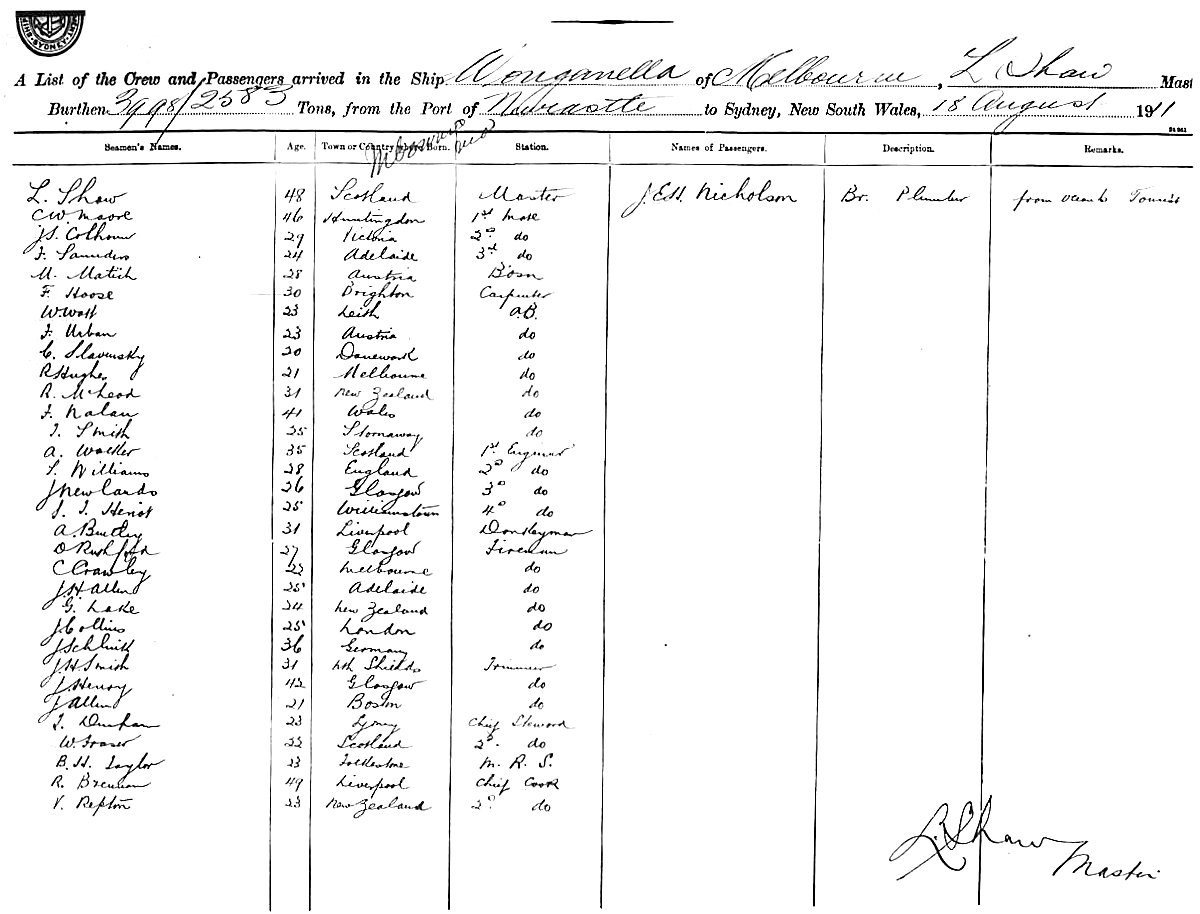 SHIPPING · SYDNEY
A List of the Crew and Passengers arrived in the Ship Wonganella of Melbourne, L Shaw Mast
Burthen 3998/2583 Tons, from the Port of Newcastle to Sydney, New South Wales, 18 August 1911
Seamen's Names. Age. Town or Country where Born. Station. Names of Passengers. Description. Remarks.
L. Shaw 48 Scotland Master J. E. H. Nicholson Br. Plumber from
C. W. Moore 46 Huntingdon 1st Mate
J. S. Colhoun 29 Victoria 2d do
F. Saunders 24 Adelaide 3rd do
M. Matich 28 Austria Bosn
F. Hoose 30 Brighton Carpenter
W. Watt 23 Leith A.B.
F. Urban 23 Austria do
C. Slavinsky 20 do
R Hughes 21 Melbourne do
R. McLeod 31 New Zealand do
F. Nalan 41 Wales do
J. Smith 25 Stornaway do
A. Walker 35 Scotland 1st Engineer
T. Williams 28 England 2d do
J Newlands 26 Glasgow 3d do
J. J. Heriot 25 Williamstown 4d do
A. Butley 31 Liverpool Donkeyman
D Rushford 27 Glasgow Fireman
C Crawley 22 Melbourne do
J H Allen 25 Adelaide do
G. Lake 24 New Zealand do
J Collins 25 London do
J Schlink 36 Germany do
J H Smith 31 Nth Shields Trimmer
J Henry 42 Glasgow do
J Allen 21 Boston do
J. Dunham 23 Chief Steward
W. Fraser 22 Scotland 2d. do
B. H. Taylor 23 Folkestone M. R. S.
R. Brennan 49 Liverpool Chief Cook
V. Repton 23 New Zealand 2d do
L. Shaw
Master